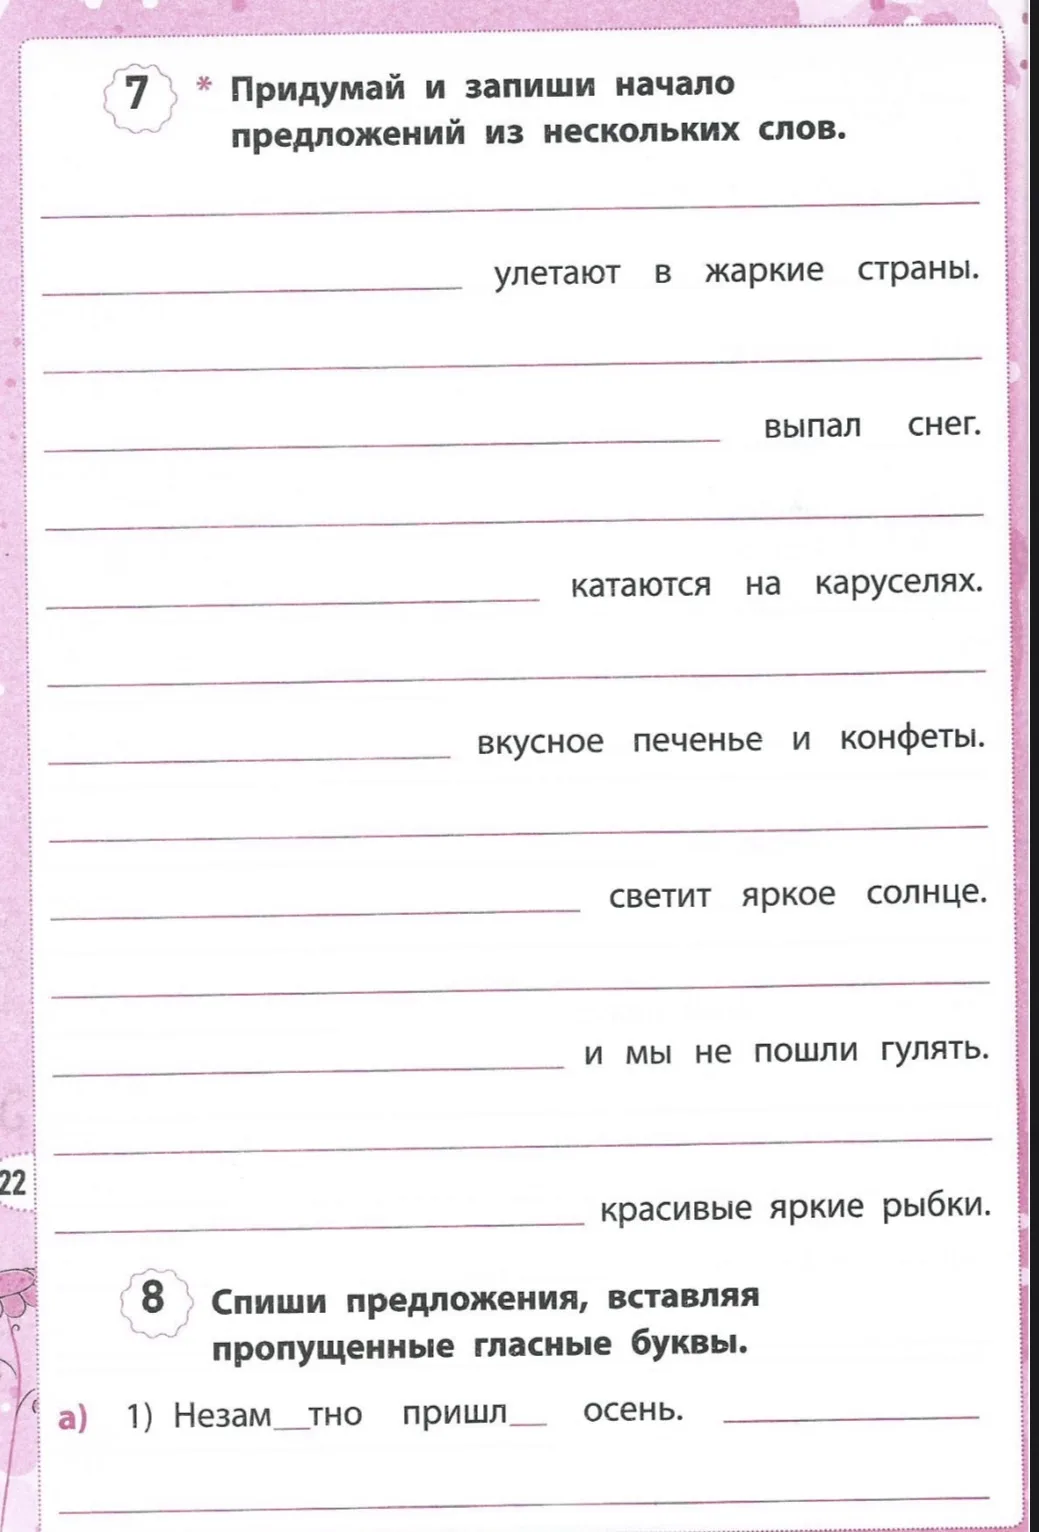 7 * Придумай и запиши начало
предложений из нескольких слов.
улетают в жаркие страны.
выпал снег.
катаются на каруселях.
вкусное печенье и конфеты.
светит яркое солнце.
и мы не пошли гулять.
22
красивые яркие рыбки.
8 Спиши предложения, вставляя
пропущенные гласные буквы.
а) 1) Незам__тно пришл__ осень.